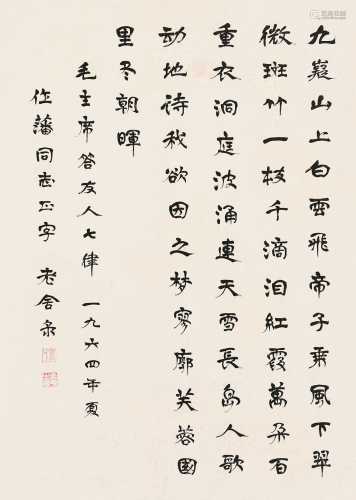 九嶷山上白雲飛帝子乘風下翠
微斑竹一枝千滴泪紅霞萬朵百
重衣洞庭波涌連天雪長島人歌
动地诗我欲因之梦寥廓芙蓉國
里尽朝暉
毛主席答友人七律 一九六四年夏
藩同志正字 老舍录